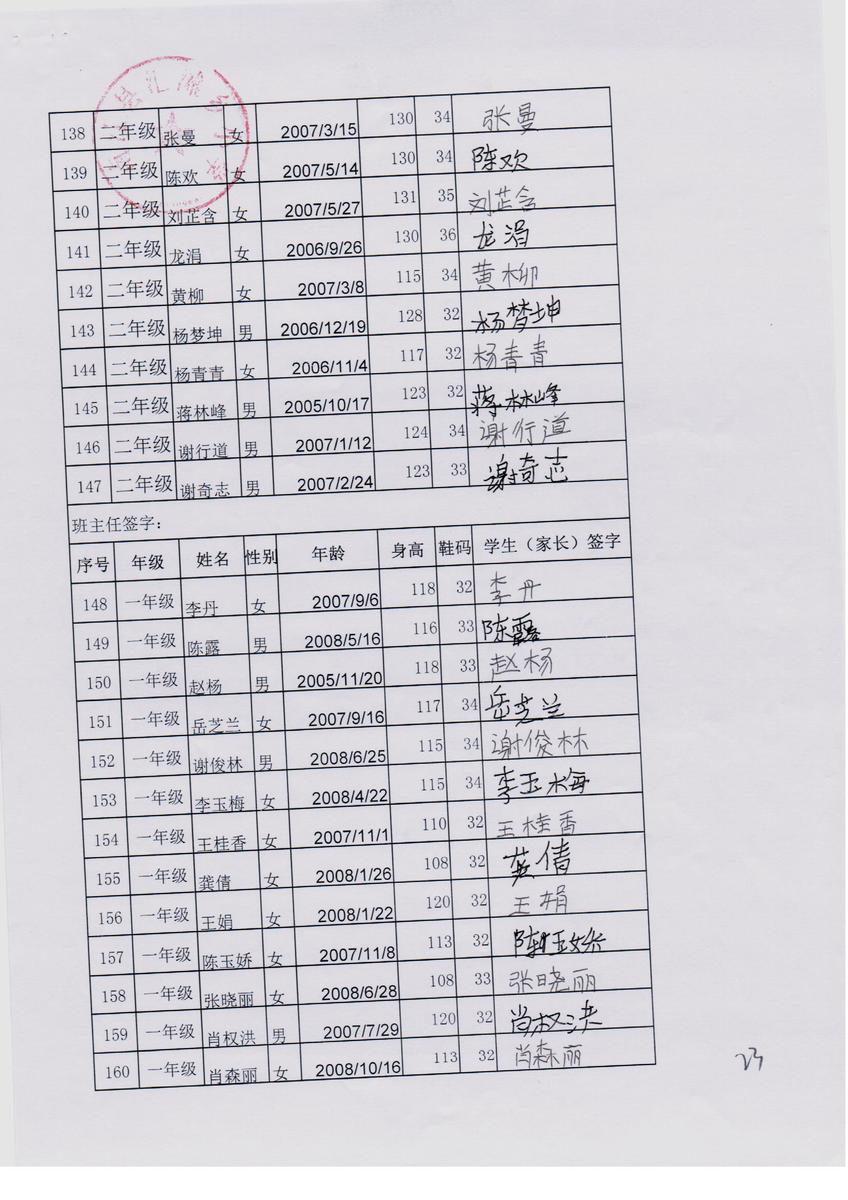 138 二年级 张曼 女 2007/3/15 130 34 张曼
139 二年级 陈欢 女 2007/5/14 130 34 陈欢
140 二年级 刘芷含 女 2007/5/27 131 35 刘芷含
141 二年级 龙涓 女 2006/9/26 130 36 龙涓
142 二年级 黄柳 女 2007/3/8 115 34 黄柳
143 二年级 杨梦坤 男 2006/12/19 128 32 杨梦坤
144 二年级 杨青青 女 2006/11/4 117 32 杨青青
145 二年级 蒋林峰 男 2005/10/17 123 32 蒋林峰
146 二年级 谢行道 男 2007/1/12 124 34 谢行道
147 二年级 谢奇志 男 2007/2/24 123 33 谢奇志
班主任签字：
序号 年级 姓名 性别 年龄 身高 鞋码 学生（家长）签字
148 一年级 李丹 女 2007/9/6 118 32 李丹
149 一年级 陈露 男 2008/5/16 116 33 陈露
150 一年级 赵杨 男 2005/11/20 118 33 赵杨
151 一年级 岳芝兰 女 2007/9/16 117 34 岳芝兰
152 一年级 谢俊林 男 2008/6/25 115 34 谢俊林
153 一年级 李玉梅 女 2008/4/22 115 34 李玉梅
154 一年级 王桂香 女 2007/11/1 110 32 王桂香
155 一年级 龚倩 女 2008/1/26 108 32 龚倩
156 一年级 王娟 女 2008/1/22 120 32 王娟
157 一年级 陈玉娇 女 2007/11/8 113 32 陈玉娇
158 一年级 张晓丽 女 2008/6/28 108 33 张晓丽
159 一年级 肖权洪 男 2007/7/29 120 32 肖权洪
160 一年级 肖森丽 女 2008/10/16 113 32 肖森丽
23